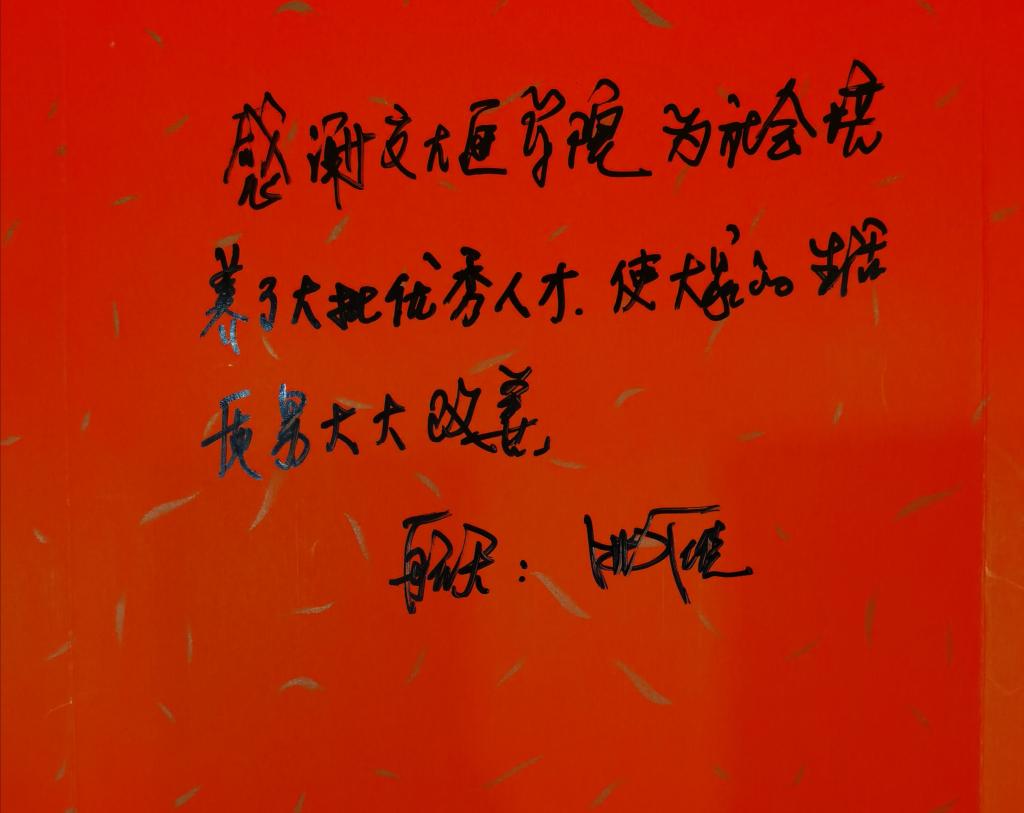 感谢交大医学院为社会培
养了大批优秀人才.使大家的生活
质量大大改善,